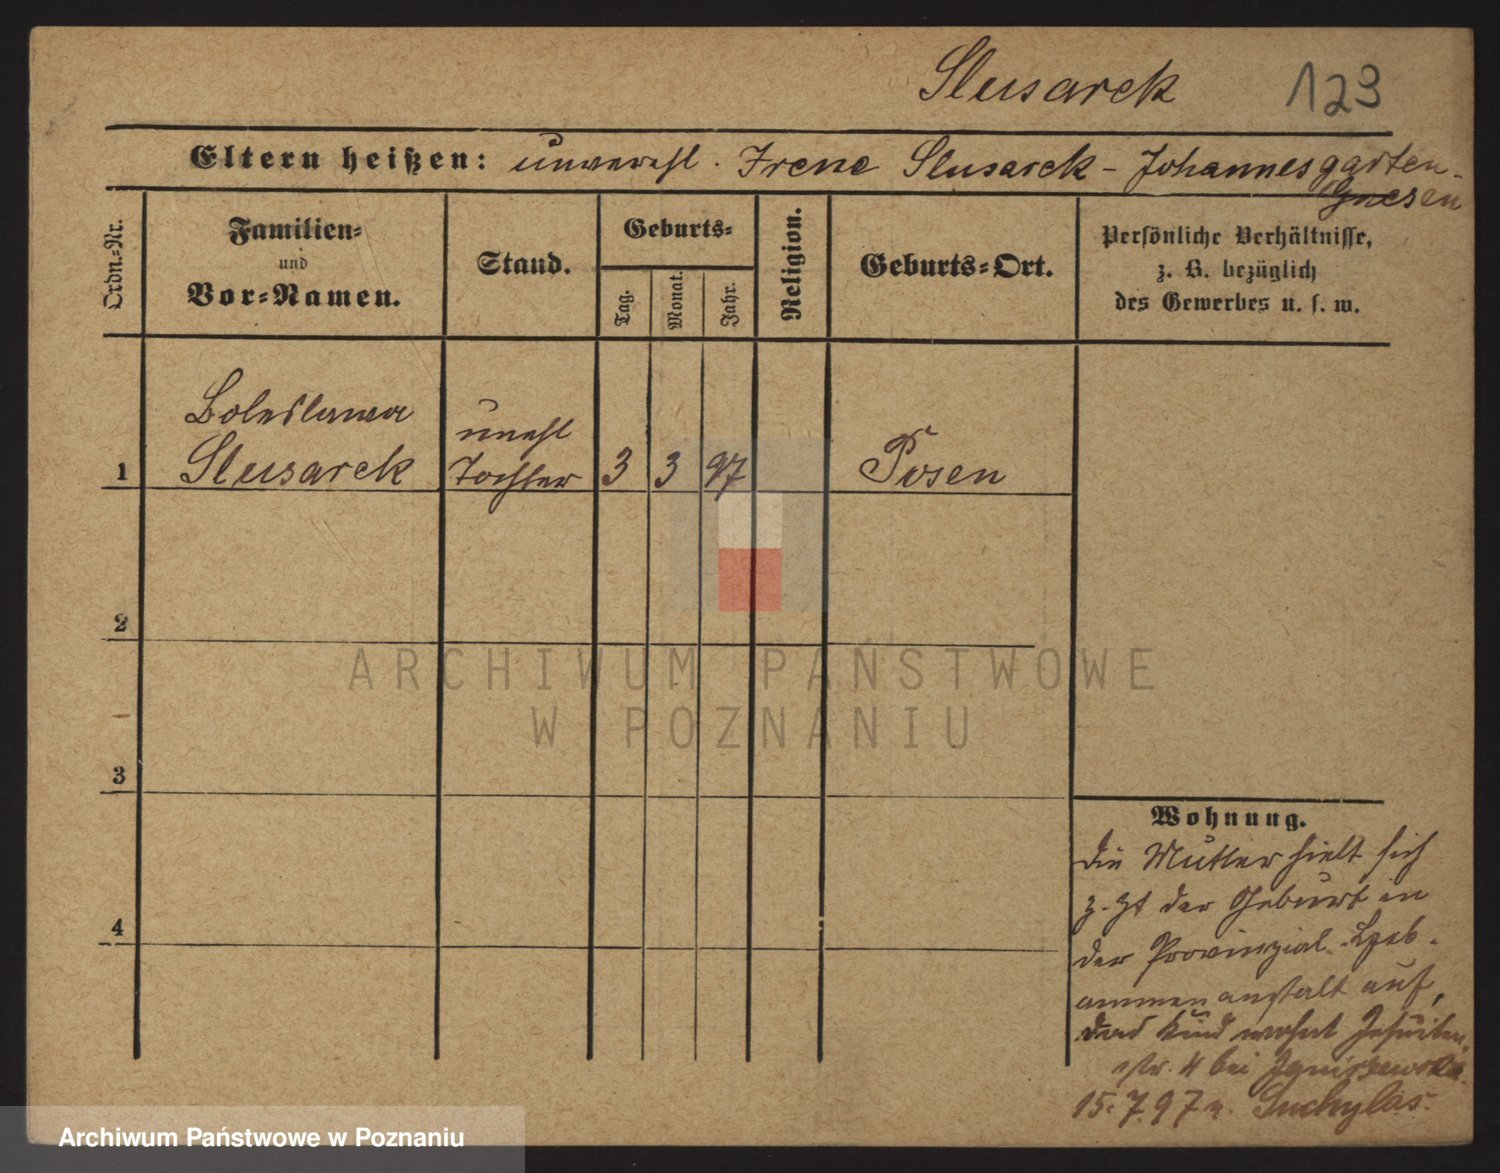 Slusarek 123
Eltern heißen: unverehl. Irene Slusarek - Johannesgarten-
Gnesen
Ordn.-Nr.
Familien-
und
Vor-Namen.
Stand.
Geburts-
Tag.
Monat.
Jahr.
Religion.
Geburts-Ort.
Persönliche Verhältnisse,
z. B. bezüglich
des Gewerbes u. s. w.
Boleslawa
Slusarek
unehl
Tochter
1
3 3 97
Posen
2
3
4
ARCHIWUM PAŃSTWOWE
W POZNANIU
Wohnung.
Die Mutter hielt sich
z. Zt der Geburt in
der Provinzial-Heb-
ammenanstalt auf,
das Kind wohnt Jesuiten-
str. 4 bei
15.7.97 n. Suchylas.
Archiwum Państwowe w Poznaniu